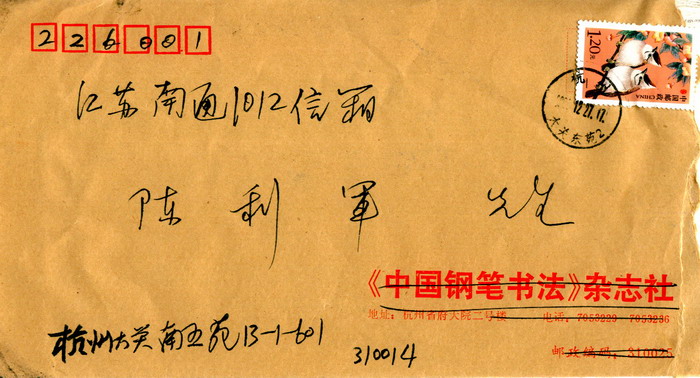 226001
1.20元
中国邮政 CHINA
杭
12.27.17
大关东苑2
江苏南通1012信箱
陈利军 先生
《中国钢笔书法》杂志社
地址：杭州省府大院二号楼 电话：7053229 7053236
邮政编码：310025
杭州大关南五苑13-1-601
310014